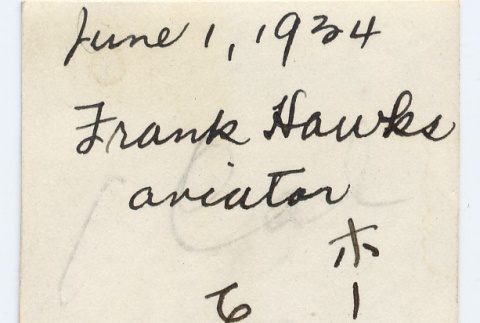 June 1, 1934
Frank Hawks
aviator
ホー
6